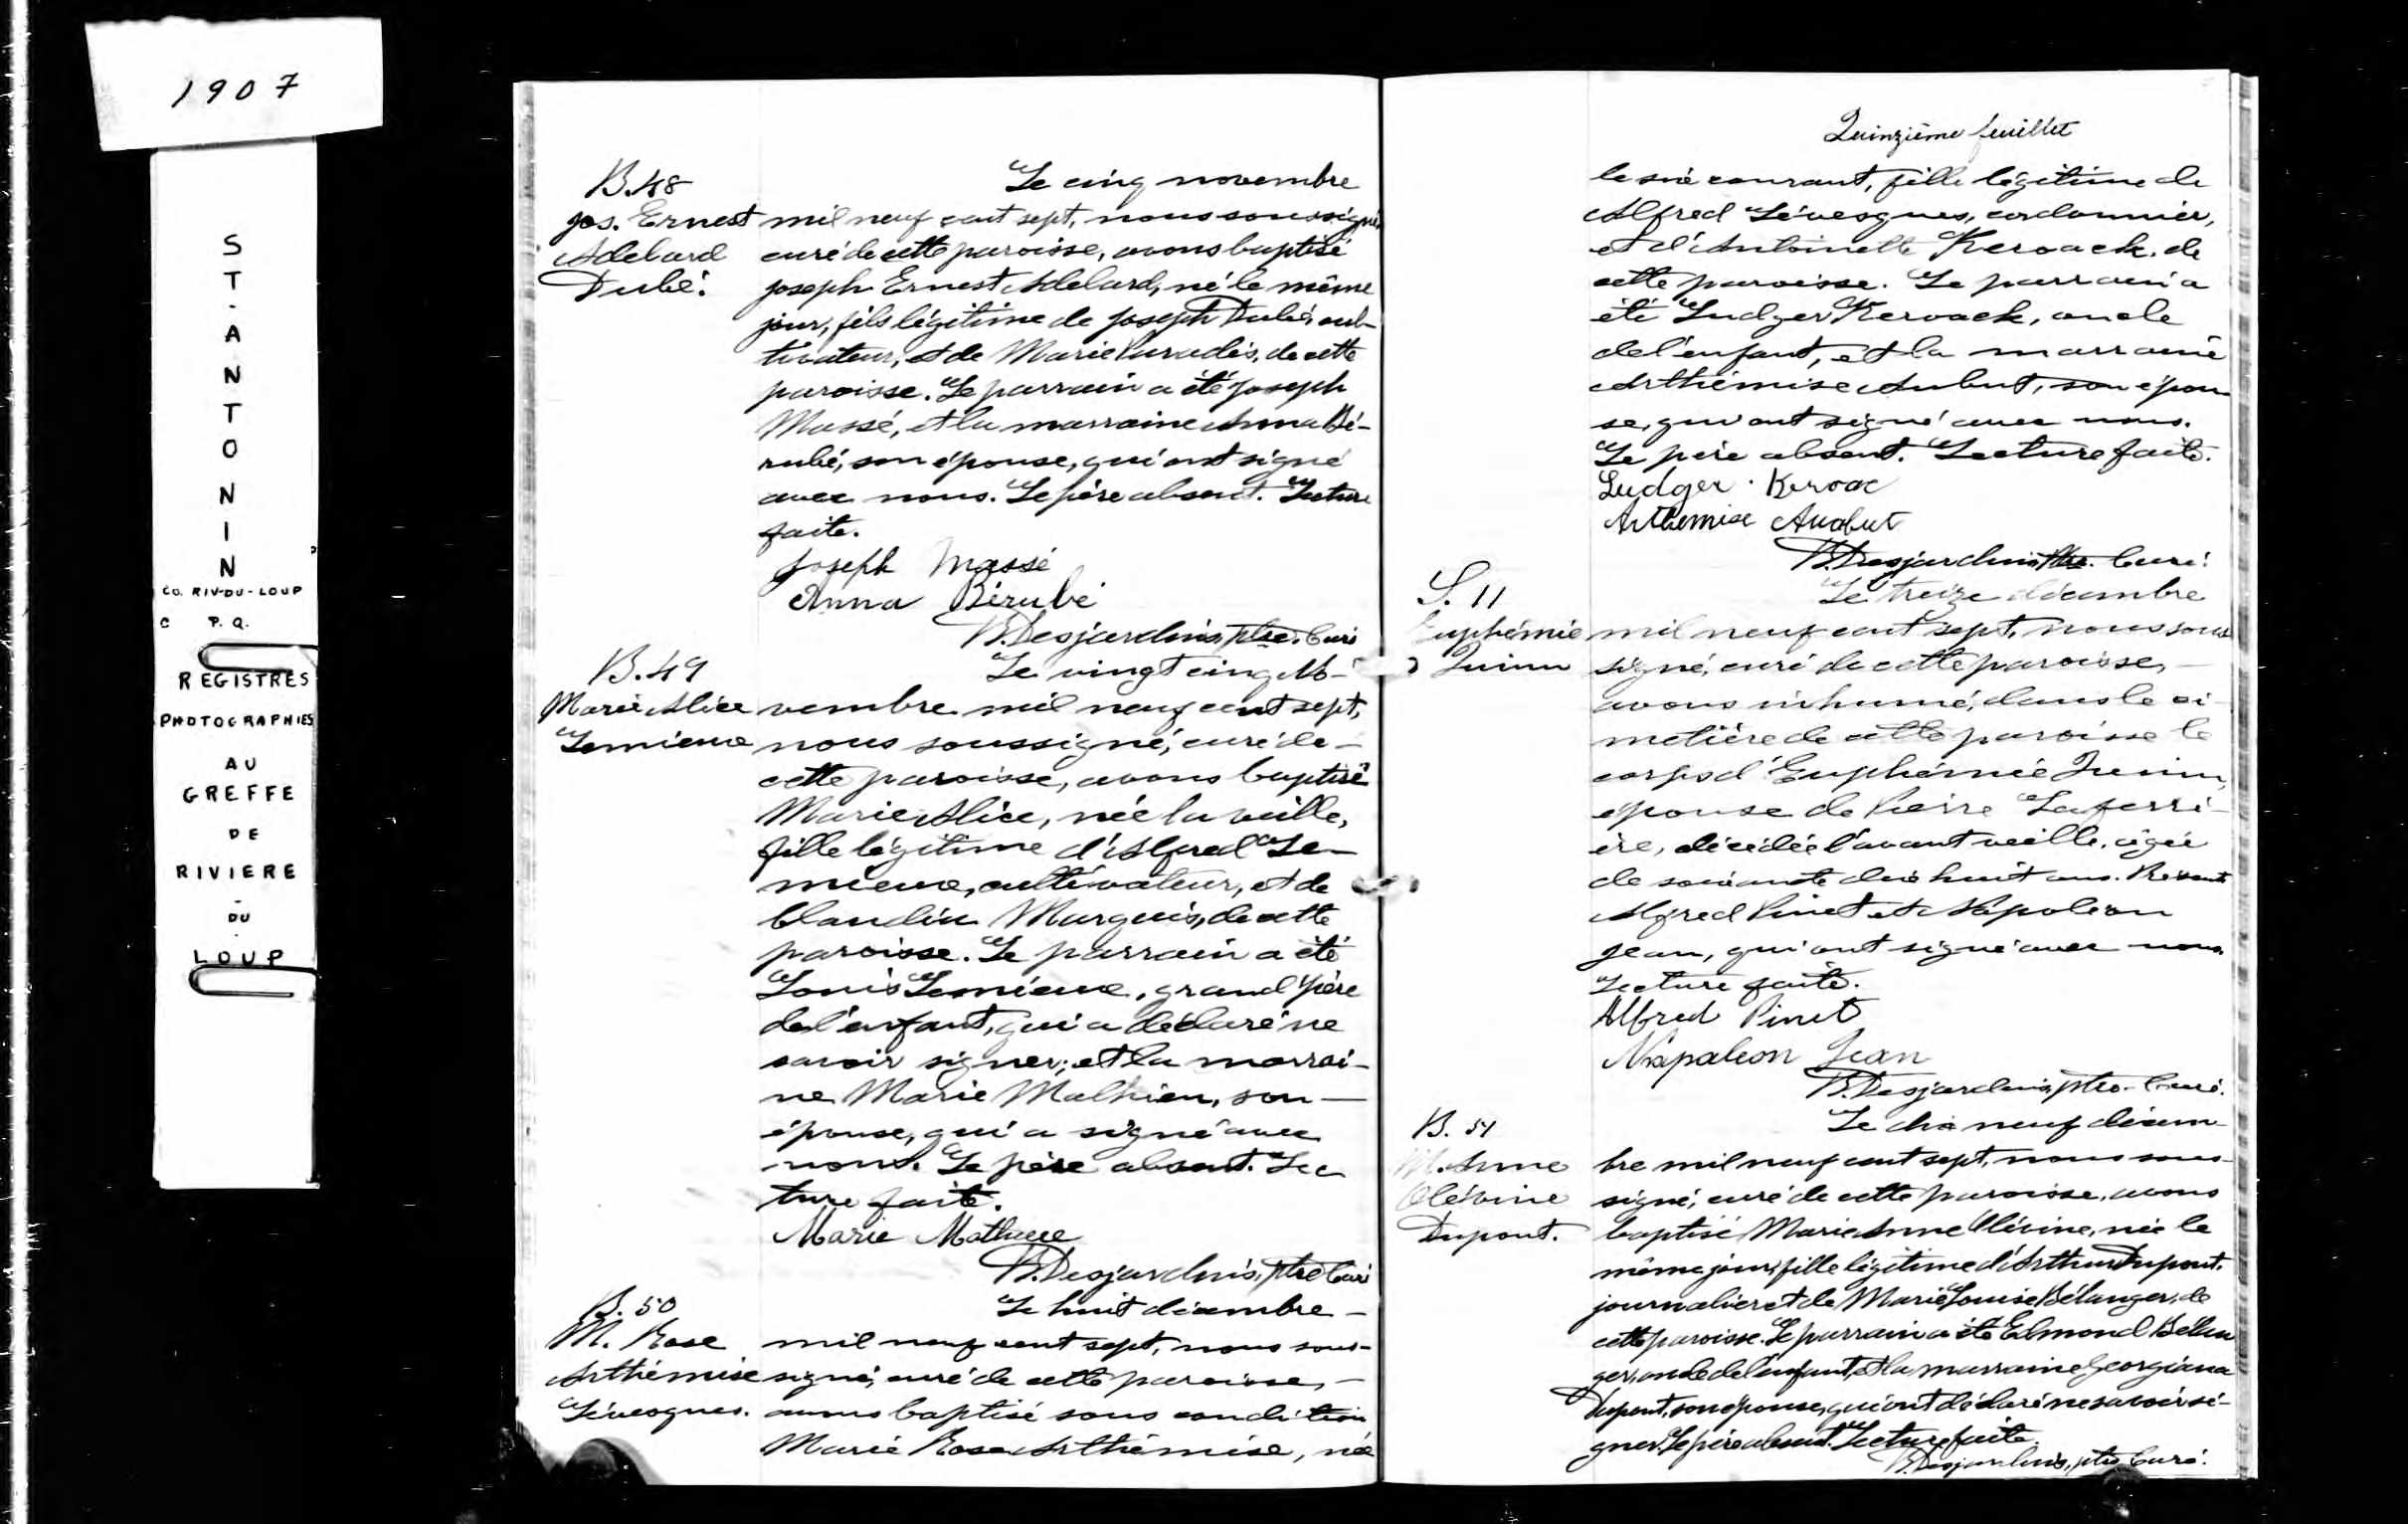 1907
ST-ANTONIN
CO. RIV-DU-LOUP
P. Q.
REGISTRES
PHOTOGRAPHIES
AU
GREFFE
DE
RIVIERE
-
DU
-
LOUP
B.48
Jos. Ernest
Adelard
Dubé.
Le cinq novembre
mil neuf cent sept, nous soussigné,
curé de cette paroisse, avons baptisé
Joseph Ernest Adelard, né le même
jour, fils légitime de Joseph Dubé, cul-
tivateur, et de Marie Paradis, de cette
paroisse. Le parrain a été Joseph
Massé, et la marraine Anna Bé-
rubé, son épouse, qui ont signé
avec nous. Le père absent. Lecture
faite.
Joseph Massé
Anna Bérubé
B. Desjardins, ptre. Curé
B.49
Marie Alice
Lemieux
Le vingt cinq No-
vembre mil neuf cent sept,
nous soussigné, curé de -
cette paroisse, avons baptisé
Marie Alice, née la veille,
fille légitime d'Alfred Le-
mieux, cultivateur, et de
Claudia Marquis, de cette
paroisse. Le parrain a été
Louis Lemieux, grand'père
de l'enfant, qui a déclaré ne
savoir signer; et la marrai-
ne Marie Mathieu, son -
épouse, qui a signé avec
nous. Le père absent. Lec
ture faite.
Marie Mathieu
B. Desjardins, ptre Curé
B. 50
M. Rose
Arthémise
Lévesques.
Le huit décembre -
mil neuf cent sept, nous sous-
signé, curé de cette paroisse, -
avons baptisé sous condition
Marie Rose Arthémise, née
Quinzième feuillet
le six courant, fille légitime de
Alfred Lévesques, cordonnier,
et d'Antoinette Keroack, de
cette paroisse. Le parrain a
été Ludger Keroack, oncle
de l'enfant, et la marraine
Arthémise Aubut, son épou
se, qui ont signé avec nous.
Le père absent. Lecture faite.
Ludger Keroac
Arthemise Audbut
B. Desjardins Ptre. Curé.
S. 11
Euphémie
Quinn
Le treize décembre
mil neuf cent sept, nous sous
signé, curé de cette paroisse, -
avons inhumé, dans le ci-
metière de cette paroisse le
corps d'Euphémie Quinn,
épouse de Pierre Laferri-
ère, décédée l'avant veille, âgée
de soixante dix huit ans. Présents
Alfred Pinet et Napoléon
Jean, qui ont signé avec nous.
Lecture faite.
Alfred Pinet
Napoleon Jean
B. Desjardins, ptre. Curé.
B. 51
M. Anne
Olévine
Dupont.
Le dix neuf décem-
bre mil neuf cent sept, nous sous-
signé, curé de cette paroisse, avons
baptisé Marie Anne Olévine, née le
même jour, fille légitime d'Arthur Dupont,
journalier et de Marie Louise Bélanger, de
cette paroisse. Le parrain a été Edmond Bélan
ger, oncle de l'enfant, et la marraine Georgiana
Dupont, son épouse, qui ont déclaré ne savoir si-
gner. Le père absent. Lecture faite.
B. Desjardins, ptre Curé.